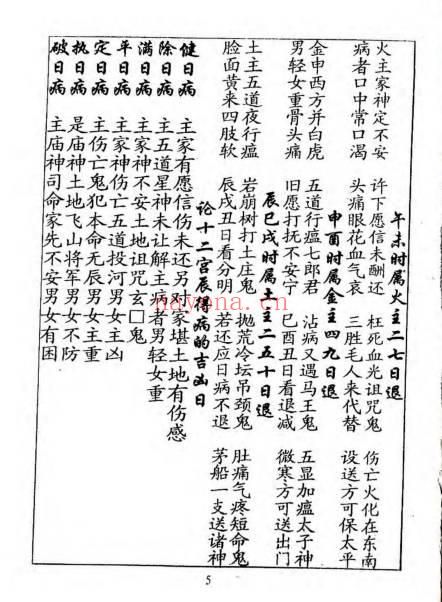 午未时属火主二七日退
火主家神定不安 许下愿信未酬还 枉死血光诅咒鬼 伤亡火化在东南
病者口中常口渴 头痛眼花血气衰 三胜毛人来代替 设送方可保太平
申酉时属金主四九日退
金申西方并白虎 五道行瘟七郎君 沾病又遇马王鬼 五显加瘟太子神
男轻女重骨头痛 旧愿打抚不安宁 巳酉丑日看退减 微寒方可送出门
辰巳戌时属土主二五十日退
土主五道夜行瘟 岩崩树打土庄鬼 抛荒冷坛吊颈鬼 肚痛气疼短命鬼
脸面黄来四肢软 辰戌丑日看分明 若还应日病不退 茅船一支送诸神
论十二宫辰得病的吉凶日
健日病 主家有愿信伤未还另出家堪土地有伤感
除日病 主五道星神未让解主病者男轻女重
满日病 主家神不安土地诅咒玄□鬼
平日病 主家神伤亡五道投河男女主凶
定日病 主伤亡鬼犯本命无辰男女主重
执日病 是庙神土地飞山将军男女不防
破日病 主庙神司命家先不安男女有困
5
nayona.cn